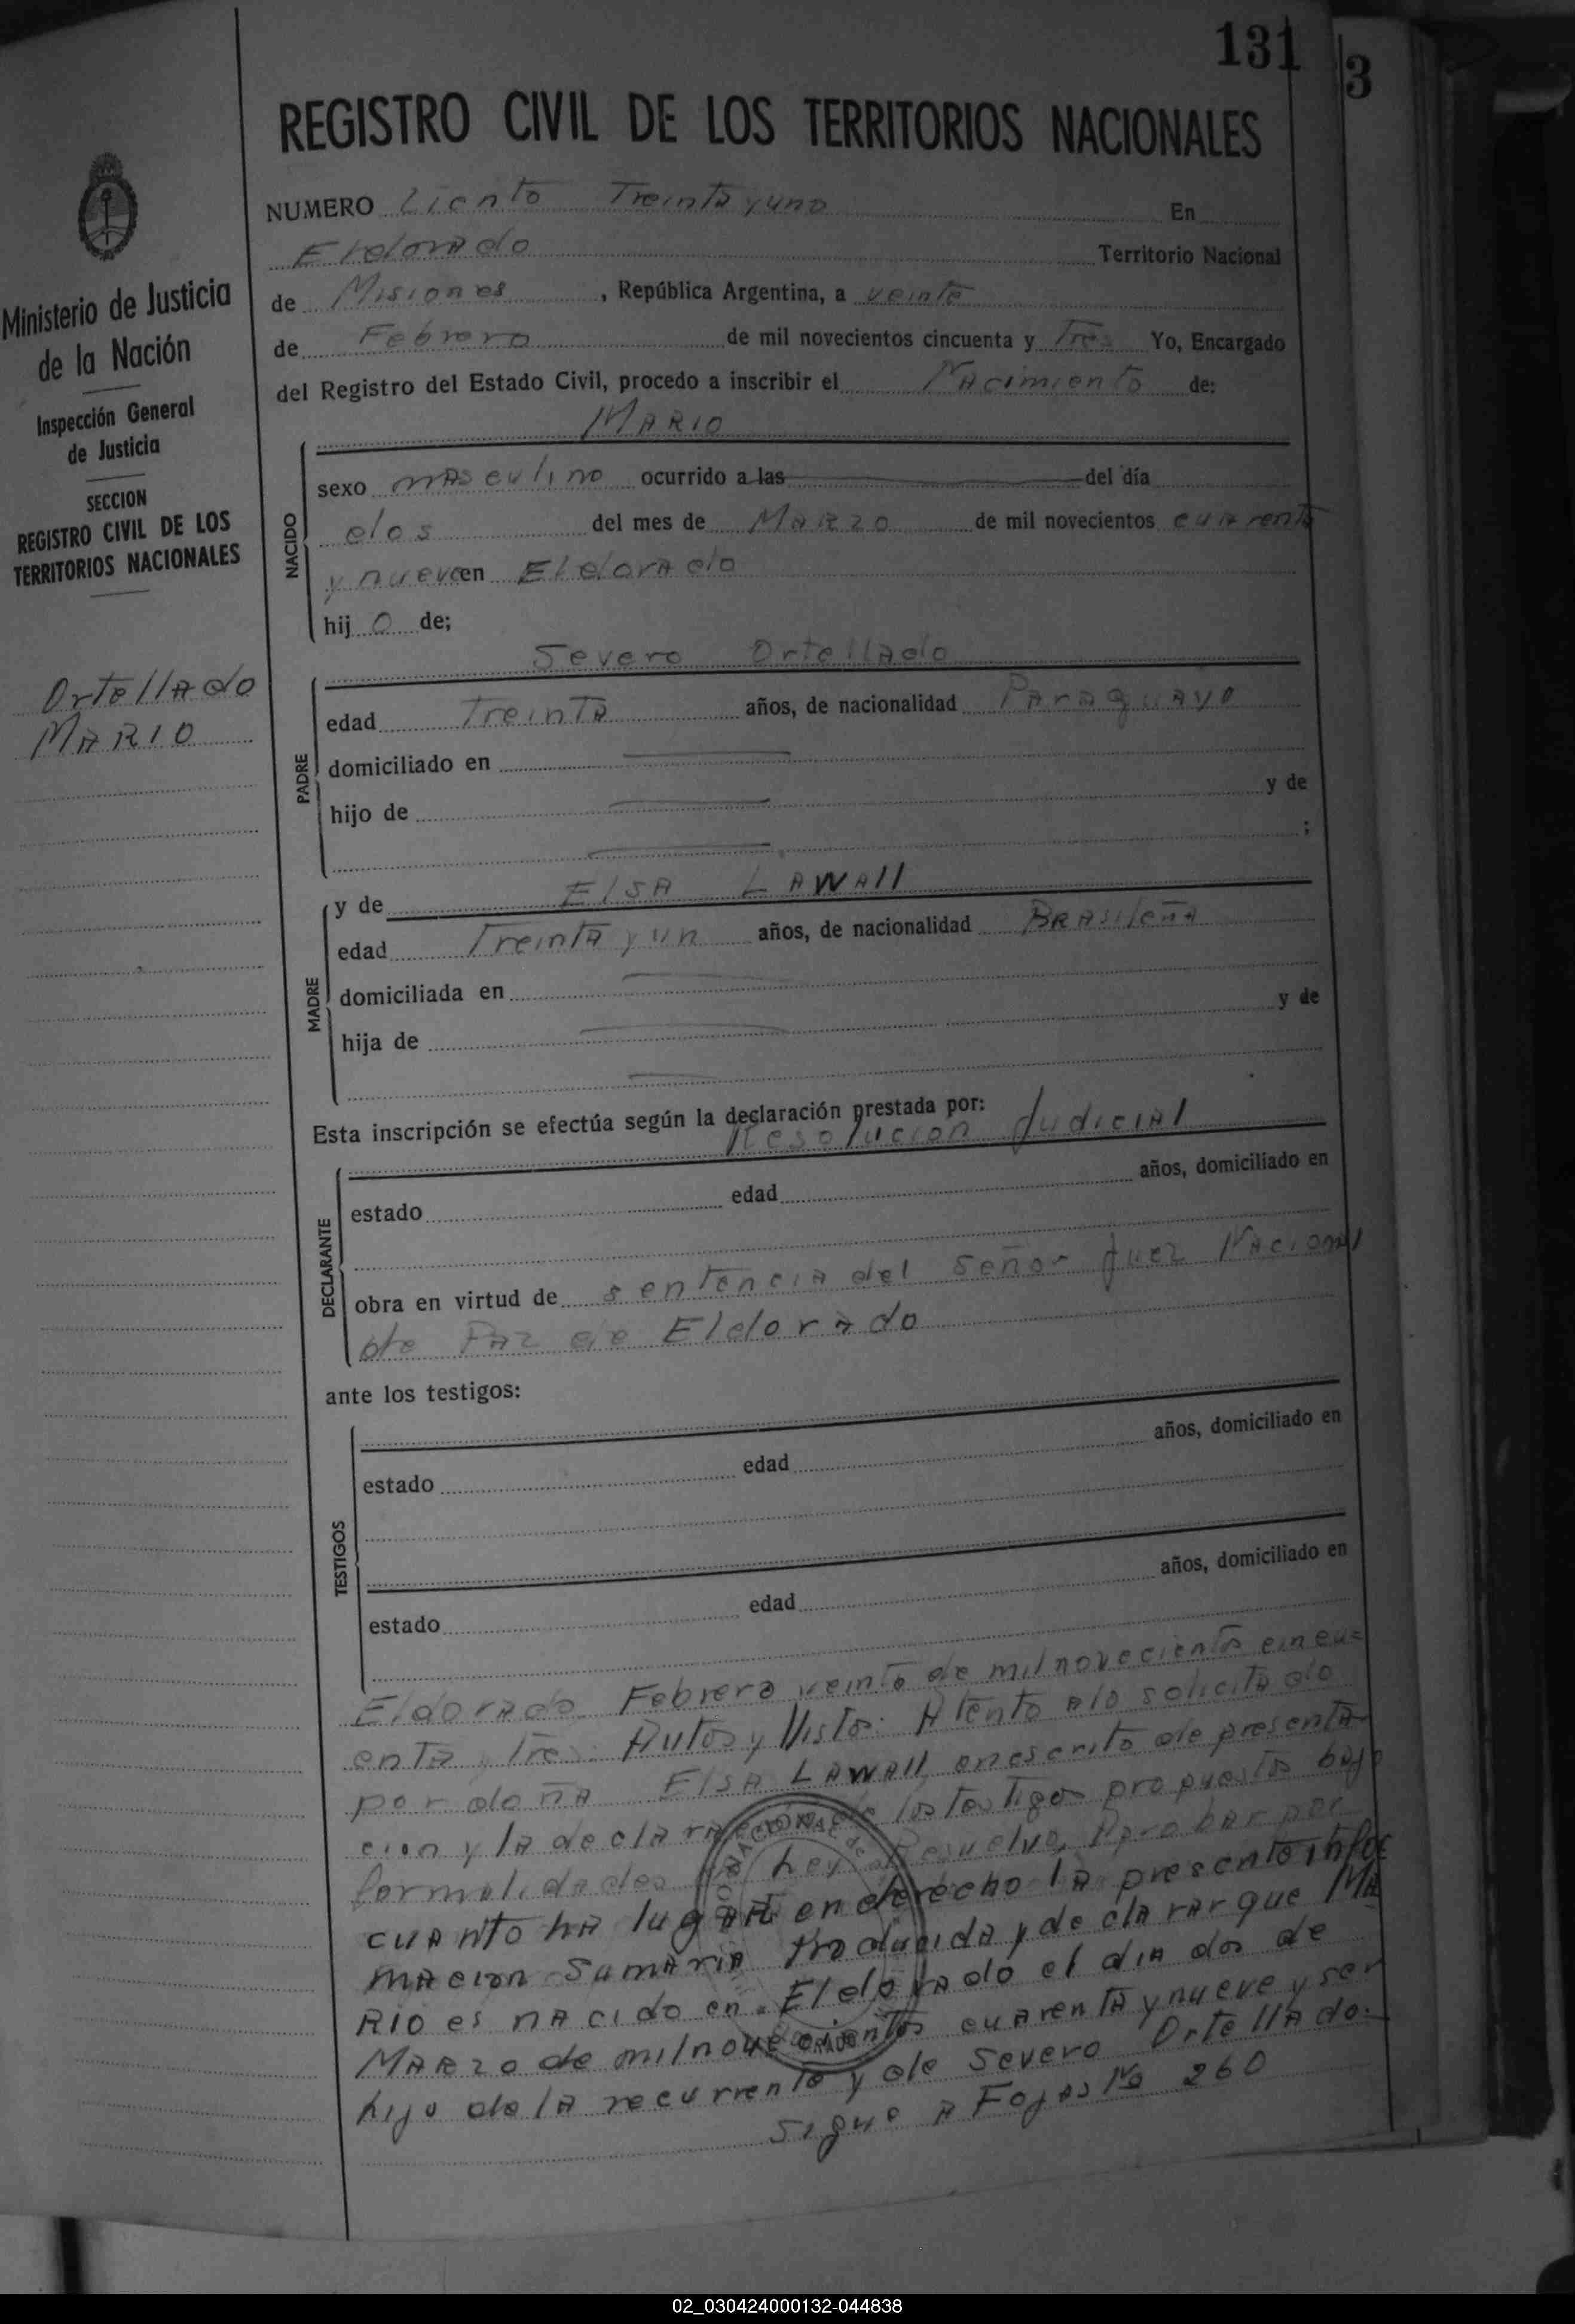 131
3
REGISTRO CIVIL DE LOS TERRITORIOS NACIONALES
Ministerio de Justicia
de la Nación
Inspección General
de Justicia
SECCION
REGISTRO CIVIL DE LOS
TERRITORIOS NACIONALES
Ortellado
MARIO
NUMERO Ciento Treinta y uno En
Eldorado Territorio Nacional
de Misiones, República Argentina, a veinte
de Febrero de mil novecientos cincuenta y Tres Yo, Encargado
del Registro del Estado Civil, procedo a inscribir el Nacimiento de:
MARIO
NACIDO
sexo masculino ocurrido a las del día
dos del mes de MARZO de mil novecientos cuarenta
y nueve en Eldorado
hij o de;
Severo Ortellado
PADRE
edad Treinta años, de nacionalidad Paraguayo
domiciliado en
hijo de y de
;
MADRE
y de Elsa LAWAll
edad Treinta y un años, de nacionalidad Brasileña
domiciliada en
hija de y de
Esta inscripción se efectúa según la declaración prestada por:
Resolucion Judicial
DECLARANTE
estado edad años, domiciliado en
obra en virtud de sentencia del Señor Juez Nacional
de Paz de Eldorado
ante los testigos:
TESTIGOS
estado edad años, domiciliado en
estado edad años, domiciliado en
Eldorado Febrero veinte de mil novecientos cincu=
enta y Tres. Autos y Vistos: Atento a lo solicitado
por doña Elsa LAWAll, en escrito de presenta-
cion y la declaracion de los testigos propuestos bajo
formalidades de Ley Resuelvo, Aprobar por
cuanto ha lugar en derecho la presente infor
macion Sumaria producida y declarar que MA
RIO es nacido en Eldorado el dia dos de
MARZO de mil novecientos cuarenta y nueve y ser
hijo de la recurrente y de Severo Ortellado.-
Sigue a Fojas No 260
02_030424000132-044838